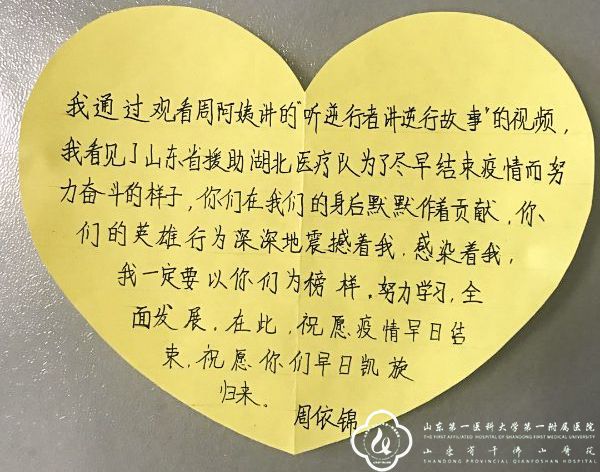 我通过观看周阿姨讲的"听逆行者讲逆行故事"的视频，
我看见了山东省援助湖北医疗队为了尽早结束疫情而努
力奋斗的样子，你们在我们的身后默默作着贡献，你
们的英雄行为深深地震撼着我，感染着我，
我一定要以你们为榜样。努力学习，全
面发展，在此，祝愿疫情早日结
束，祝愿你们早日凯旋
归来。
周依锦
山东第一医科大学第一附属医院
THE FIRST AFFILIATED HOSPITAL OF SHANDONG FIRST MEDICAL UNIVERSITY
山东省千佛山医院
SHANDONG PROVINCIAL QIANFOSHAN HOSPITAL